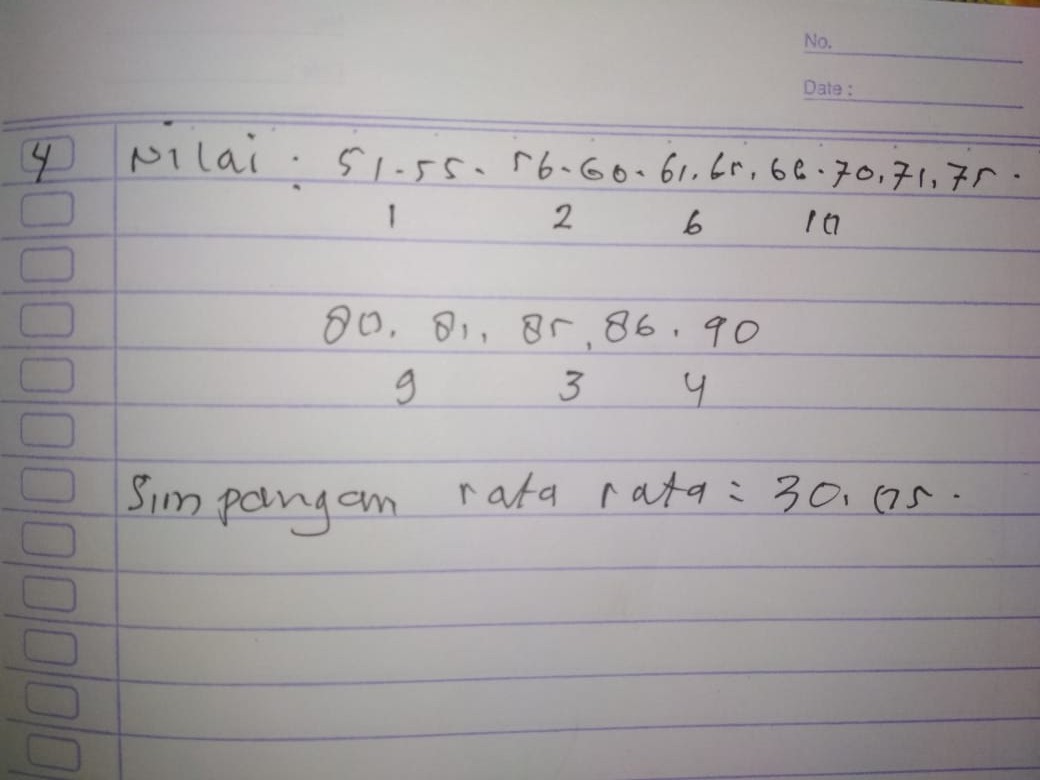 No.
Date :
4 Nilai : 51-55. 56-60. 61,65, 66.70,71,75.
1 2 6 10
80. 81, 85, 86. 90
9 3 4
Simpangan rata rata = 30,05.